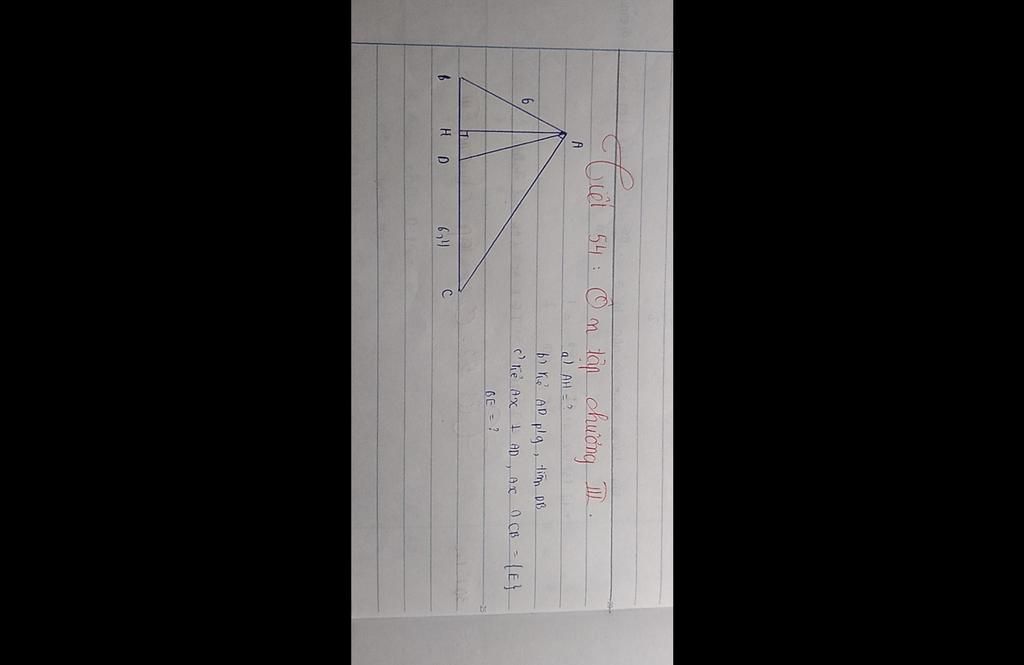 Tiết 54: Ôn tập chương III.
a) AH = ?
b) Kẻ AD p/g, tìm DB
c) Kẻ Ax ⊥ AD, Ax ∩ CB = {E}
BE = ?
A
6
B
H
D
6,4
C